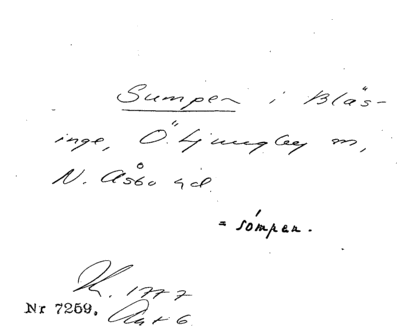 Sumpen i Bläs-
inge, Ö. Ljungby m,
N. Åsbo hd.
= sómpen.
K. 1777
Akt 6
Nr 7259.